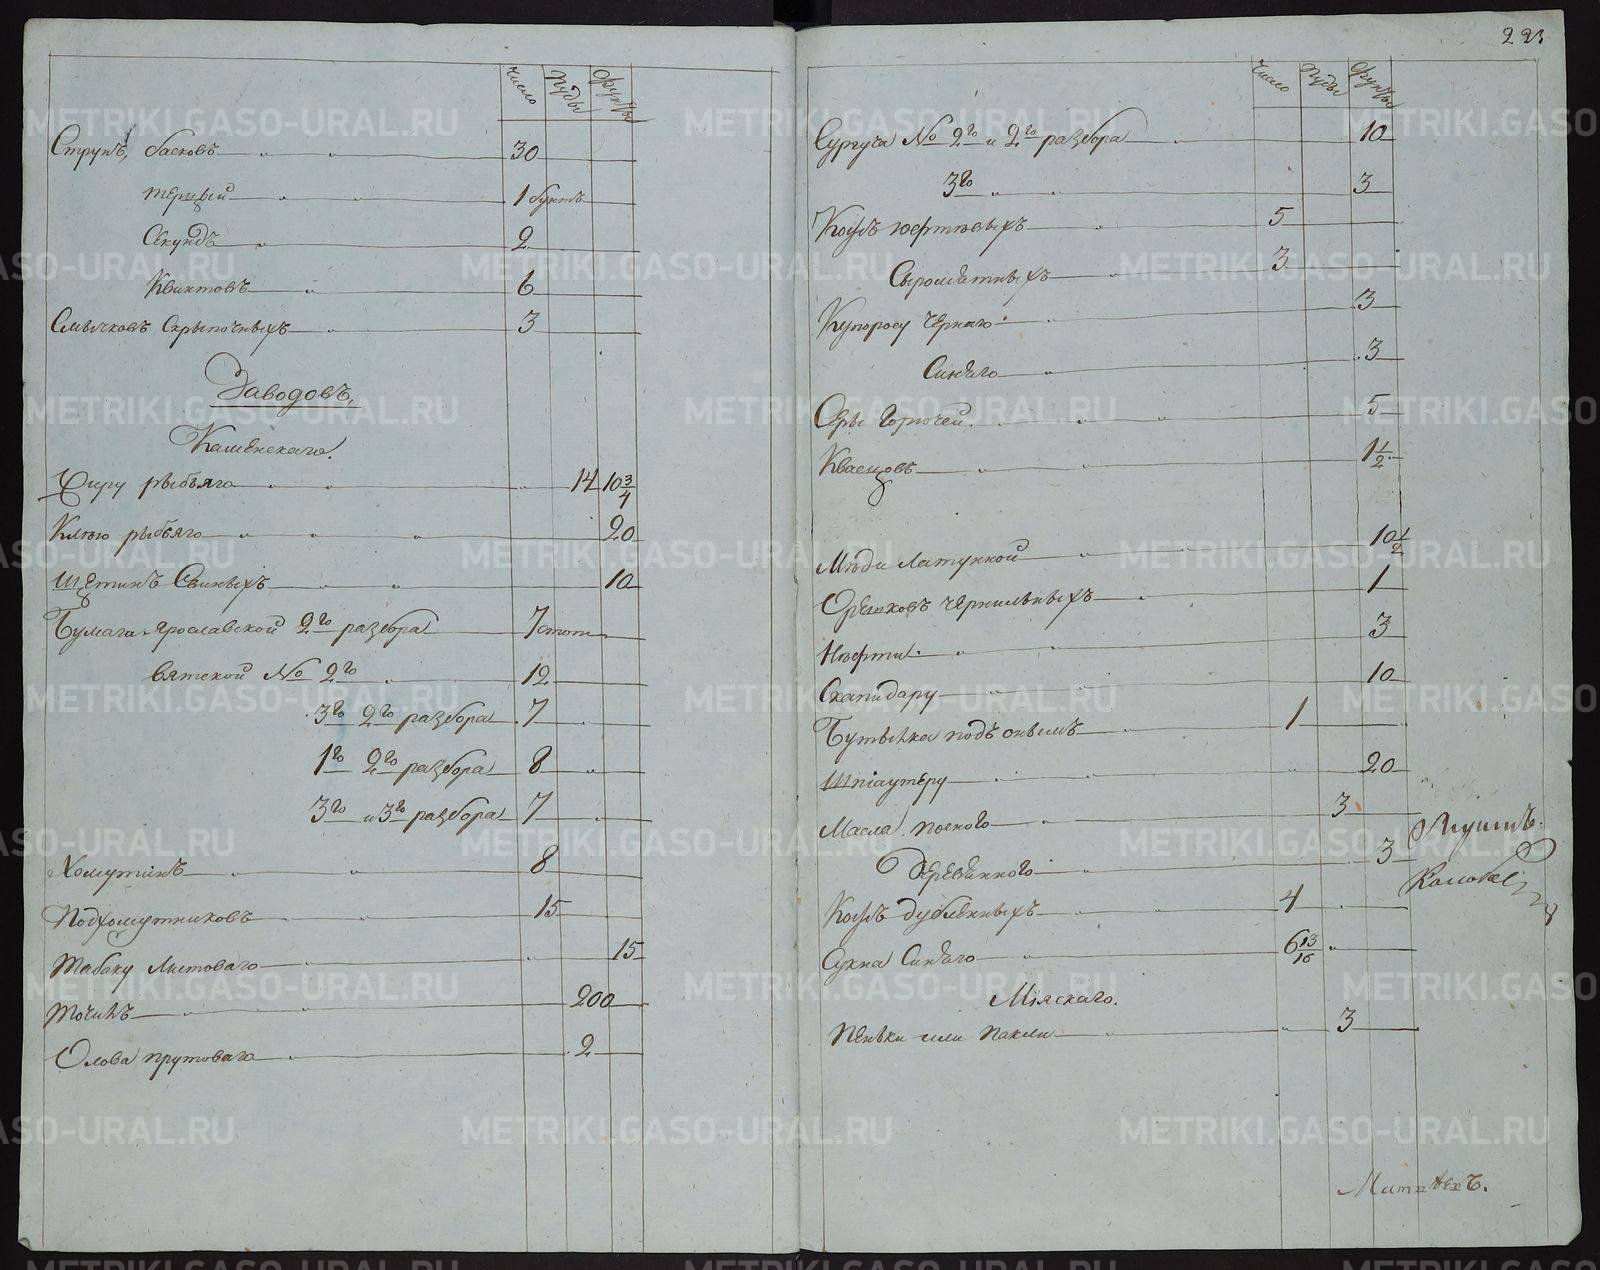 число пуды фунты
Струнъ, басковъ " " 30
терцый " " 1 бунтъ
Секундъ " 2
Квинтовъ " 6
Смычковъ Скрыпочныхъ " 3
Заводовъ,
Каменскаго.
Жиру рыбьяго " " " 14 10 3/4
Клею рыбьяго " " " 20
Щетинъ Свиныхъ " " 10
Бумаги Ярославской 2го разбора 7 стоп
Вятской № 2го " 12
3го 2го разбора 7
1го 2го разбора 8 "
3го и 3го разбора 7 "
Хомутинъ " " 8
Подхомутниковъ " " 15
Табаку Листоваго " " " 15
Точилъ " " 200
Олова прутоваго " 2
223
число пуды фунты
Сургуча № 2го и 2го разбора " 10
3го " " 3
Кожъ юфтевыхъ " 5
Сыромятныхъ " 3
Купоросу чернаго " 3
Синяго " 3
Серы Горючей " " " 5
Квасцовъ " " 1 1/2
Мѣди Латунной " " 10 1/2
Орешковъ чернильныхъ " 1
Нефти " " 3
Скапидару " " 10
Бутылка подъ онымъ " 1
Шпіаутеру " " " 20
Масла поснаго " 3
Деревяннаго " 3
Кожъ дубленныхъ " " 4 "
Сукна Синяго " 6 13/16 "
Міяскаго.
Пеньки или Пакли " " 3